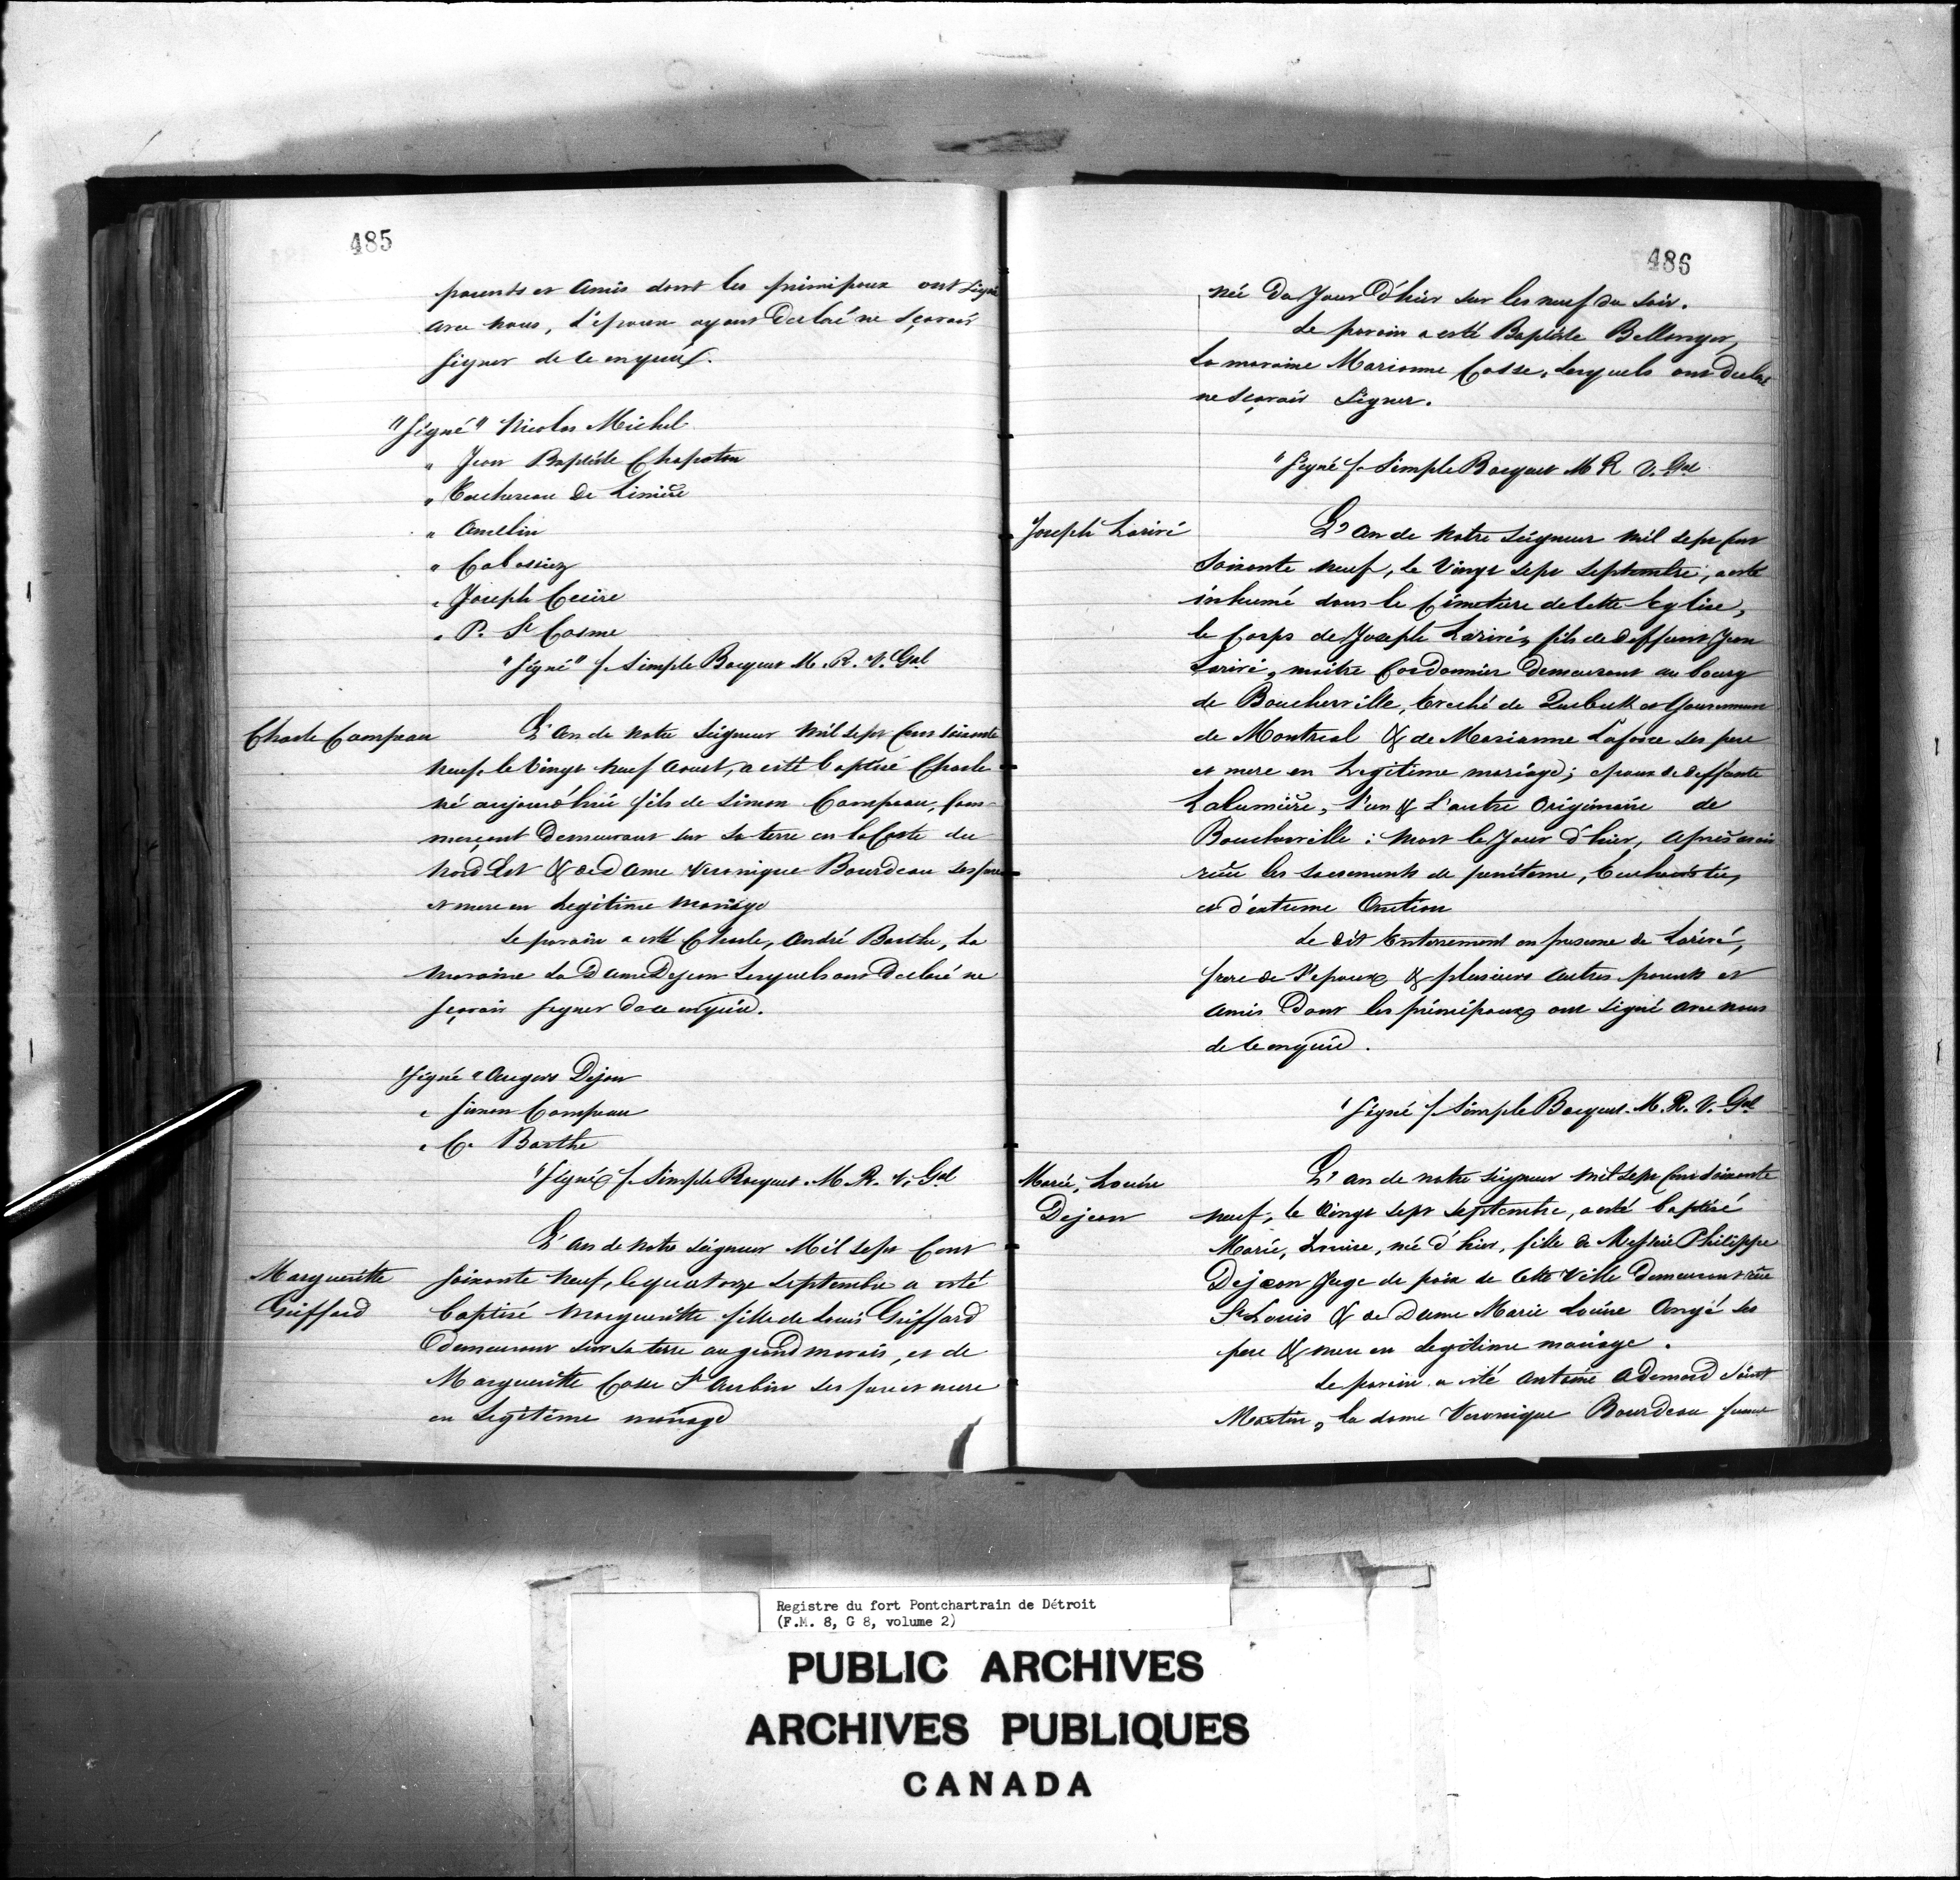 485
parents et Amis dont les principaux ont signé
avec nous, l'epoux ayant Declaré ne sçavoir
signer de ce enquis.
"Signé" Nicolas Michel
" Jean Baptiste Chapoton
" Tachereau de Linière
" Amelin
" Cabassiez
" Joseph Cecire
" P. St Cosme
"Signé" f. Simple Bocquet M. R. V. Gal
Charle Campeau
L'An de notre Seigneur mil sept Cens soixante
neuf, le Vingt neuf Aoust, a esté baptisé Charle
né aujourd'hui fils de Simon Campeau, Com-
merçant Demeurant sur sa terre en la Coste du
Nord Est & de Dame Veronique Bourdeau ses pere
et mere en Legitime mariage
Le parain a esté Charle, André Barthe, La
maraine La Dame Dejean Lesquels ont Declaré ne
sçavoir signer de ce enquis.
Signé " Dejean
" Simon Campeau
" C. Barthe
"Signé f. Simple Bocquet. M. R. V. Gal
Margueritte
Griffard
L'An de notre Seigneur Mil sept Cent
soixante neuf, le quatorze Septembre a esté
baptisé Margueritte fille de Louis Griffard
demeurant sur sa terre au grand marais, et de
Margueritte Casse St Aubin ses pere et mere
en Legitime mariage
486
née Du Jour D'hier sur les neuf du soir.
Le parain a esté Baptiste Bellonger,
La maraine Marianne Casse, Lesquels ont Declaré
ne sçavoir Signer.
"Signé f. Simple Bocquet M R V. Gal
Joseph Larivé
L'An de Notre Seigneur mil sept Cent
soixante neuf, le Vingt sept Septembre, a esté
inhumé dans le Cimetiere de cette Eglise,
le Corps de Joseph Larivé, fils de deffunt Jean
Larivé, maitre Cordonnier Demeurant au bourg
de Boucherville, Eveché de Quebeck et Gouvernement
de Montreal & de Marianne Laforce ses pere
et mere en Legitime mariage; epoux de deffunte
Lalumière, l'un & l'autre Originaire de
Boucherville : mort le Jour d'hier, Après avoir
reçu les sacrements de penitence, Eucharistie,
et d'extreme Onction
Le dit Enterrement en presence de Larivé,
frere de l'epoux & plusieurs autres parents et
Amis Dont les principaux ont signé avec nous
de ce enquis.
"Signé f. Simple Bocquet. M. R. V. Gal
Marie, Louise
Dejean
L'an de notre Seigneur mil sept Cent soixante
neuf, le Vingt sept Septembre, a esté baptisé
Marie, Louise, née d'hier, fille de Messire Philippe
Dejean Juge de paix de cette Ville Demeurant rüe
St Louis & de Dame Marie Louise Augé ses
pere & mere en Legitime mariage.
Le parain a esté Antoine Adhemard Saint
Martin, la dame Veronique Bourdeau femme
Registre du fort Pontchartrain de Détroit
(F.M. 8, G 8, volume 2)
PUBLIC ARCHIVES
ARCHIVES PUBLIQUES
CANADA